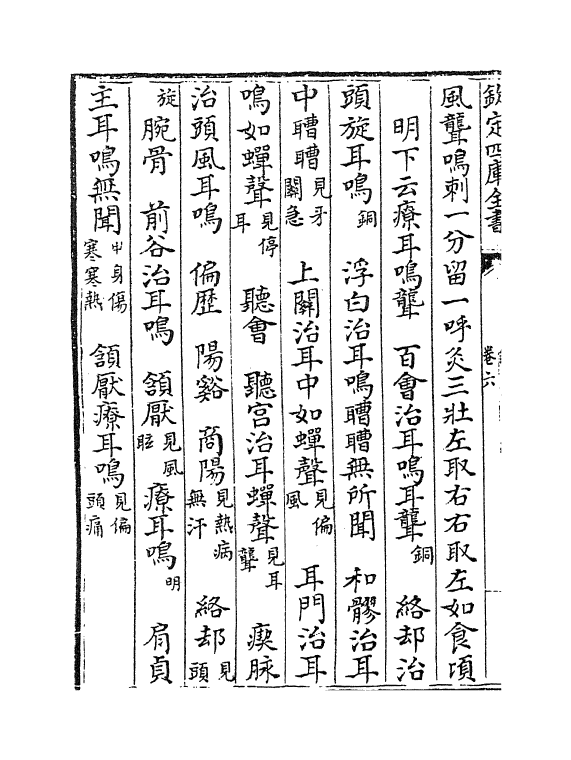 欽定四庫全書
卷六
風聾鳴刺一分留一呼灸三壯左取右右取左如食頃
明下云療耳鳴聾　百會治耳鳴耳聾銅　絡却治
頭旋耳鳴銅　浮白治耳鳴嘈嘈無所聞　和髎治耳
中嘈嘈見牙關急　上關治耳中如蟬聲見偏風　耳門治耳
鳴如蟬聲見停耳　聽會　聽宮治耳蟬聲見耳聾　瘈脉
治頭風耳鳴　偏歴　陽谿　商陽見熱病無汗　絡却見頭
旋　腕骨　前谷治耳鳴　頷厭見風眩　療耳鳴明　肩貞
主耳鳴無聞中身傷寒寒熱　頷厭療耳鳴見偏頭痛